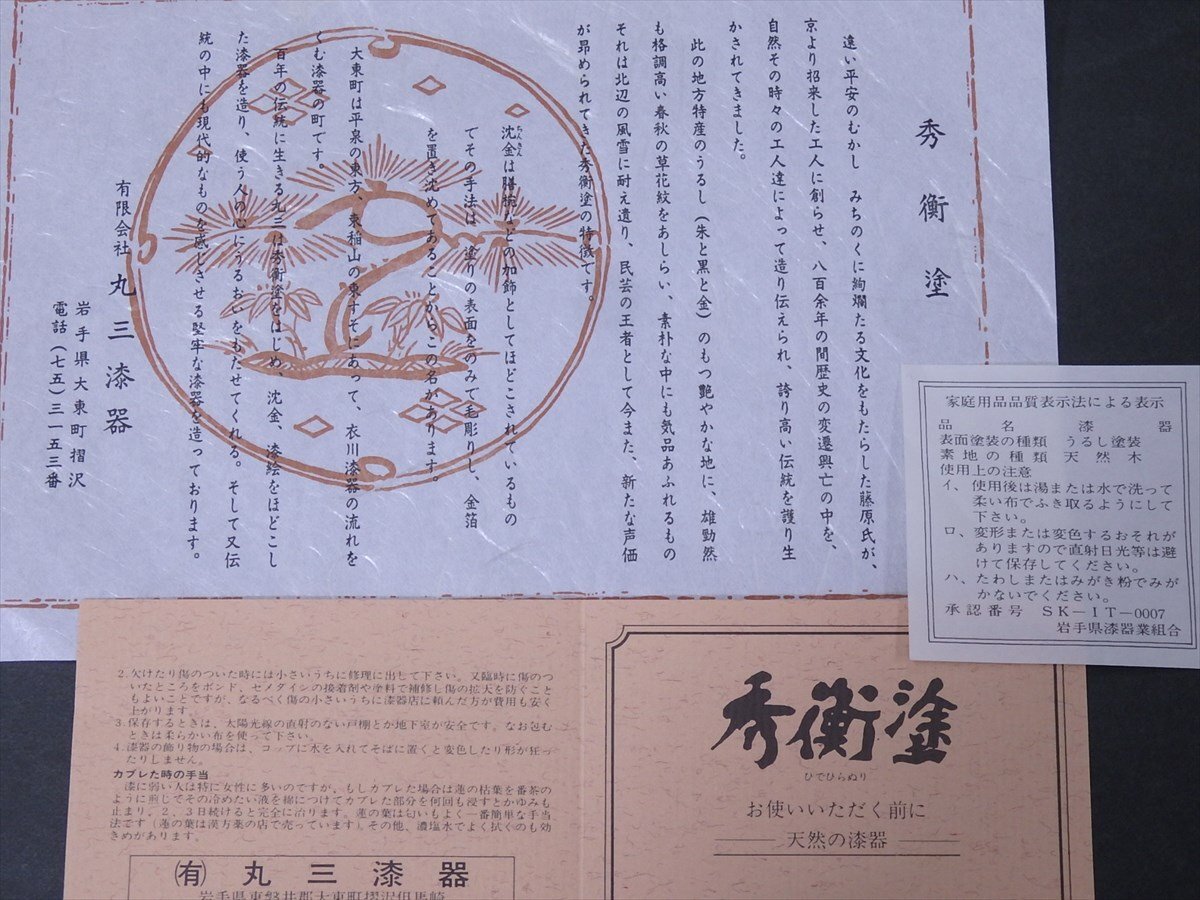 秀衡塗
遠い平安のむかし　みちのくに絢爛たる文化をもたらした藤原氏が、
京より招来した工人に創らせ、八百余年の間歴史の変遷興亡の中を、
自然その時々の工人達によって造り伝えられ、誇り高い伝統を護り生
かされてきました。
此の地方特産のうるし（朱と黒と金）のもつ艶やかな地に、雄勁然
も格調高い春秋の草花紋をあしらい、素朴な中にも気品あふれるもの
それは北辺の風雪に耐え遺り、民芸の王者として今また、新たな声価
が昂められてきた秀衡塗の特徴です。
沈金は膳椀などの加飾としてほどこされているもの
ちんきん
でその手法は、塗りの表面をのみで毛彫りし、金箔
を置き沈めてあることからこの名があります。
大東町は平泉の東方、束稲山の東すそにあって、衣川漆器の流れを
くむ漆器の町です。
百年の伝統に生きる丸三は秀衡塗をはじめ、沈金、漆絵をほどこし
た漆器を造り、使う人の心にうるおいをもたせてくれる。そして又伝
統の中にも現代的なものを感じさせる堅牢な漆器を造っております。
有限会社　丸三漆器
岩手県大東町摺沢
電話（七五）三一五三番
家庭用品品質表示法による表示
品名　漆器
表面塗装の種類　うるし塗装
素地の種類　天然木
使用上の注意
イ、使用後は湯または水で洗って
柔い布でふき取るようにして
下さい。
ロ、変形または変色するおそれが
ありますので直射日光等は避
けて保存してください。
ハ、たわしまたはみがき粉でみが
かないでください。
承認番号　SK－IT－0007
岩手県漆器業組合
2.欠けたり傷のついた時には小さいうちに修理に出して下さい。又臨時に傷のつ
いたところをボンド、セメダインの接着剤や塗料で補修し傷の拡大を防ぐこと
もよいことですが、なるべく傷の小さいうちに漆器店に頼んだ方が費用も安く
上がります。
3.保存するときは、太陽光線の直射のない戸棚とか地下室が安全です。なお包む
ときは柔らかい布を使って下さい。
4.漆器の飾り物の場合は、コップに水を入れてそばに置くと変色したり形が狂っ
たりしません。
カブレた時の手当
漆に弱い人は特に女性に多いのですが、もしカブレた場合は蓮の枯葉を番茶の
ように煎じてその冷めたい液を綿につけてカブレた部分を何回も浸すとかゆみも
止まり、2、3日続けると完全に治ります。蓮の葉は匂いもよく一番簡単な手当
法です（蓮の葉は漢方薬の店で売っています）。その他、濃塩水でよく拭くのも効
きめがあります。
㈲　丸三漆器
岩手県東磐井郡大東町摺沢但馬崎
秀衡塗
ひでひらぬり
お使いいただく前に
天然の漆器